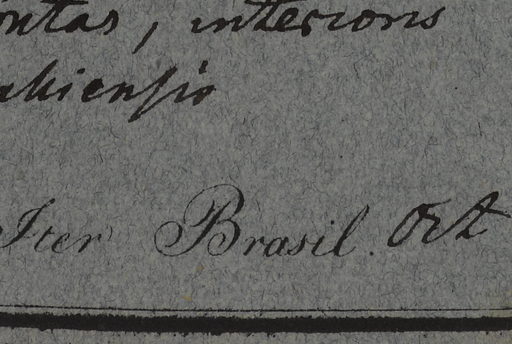 ontas, interioris
ahiensis
Iter Brasil. Oct